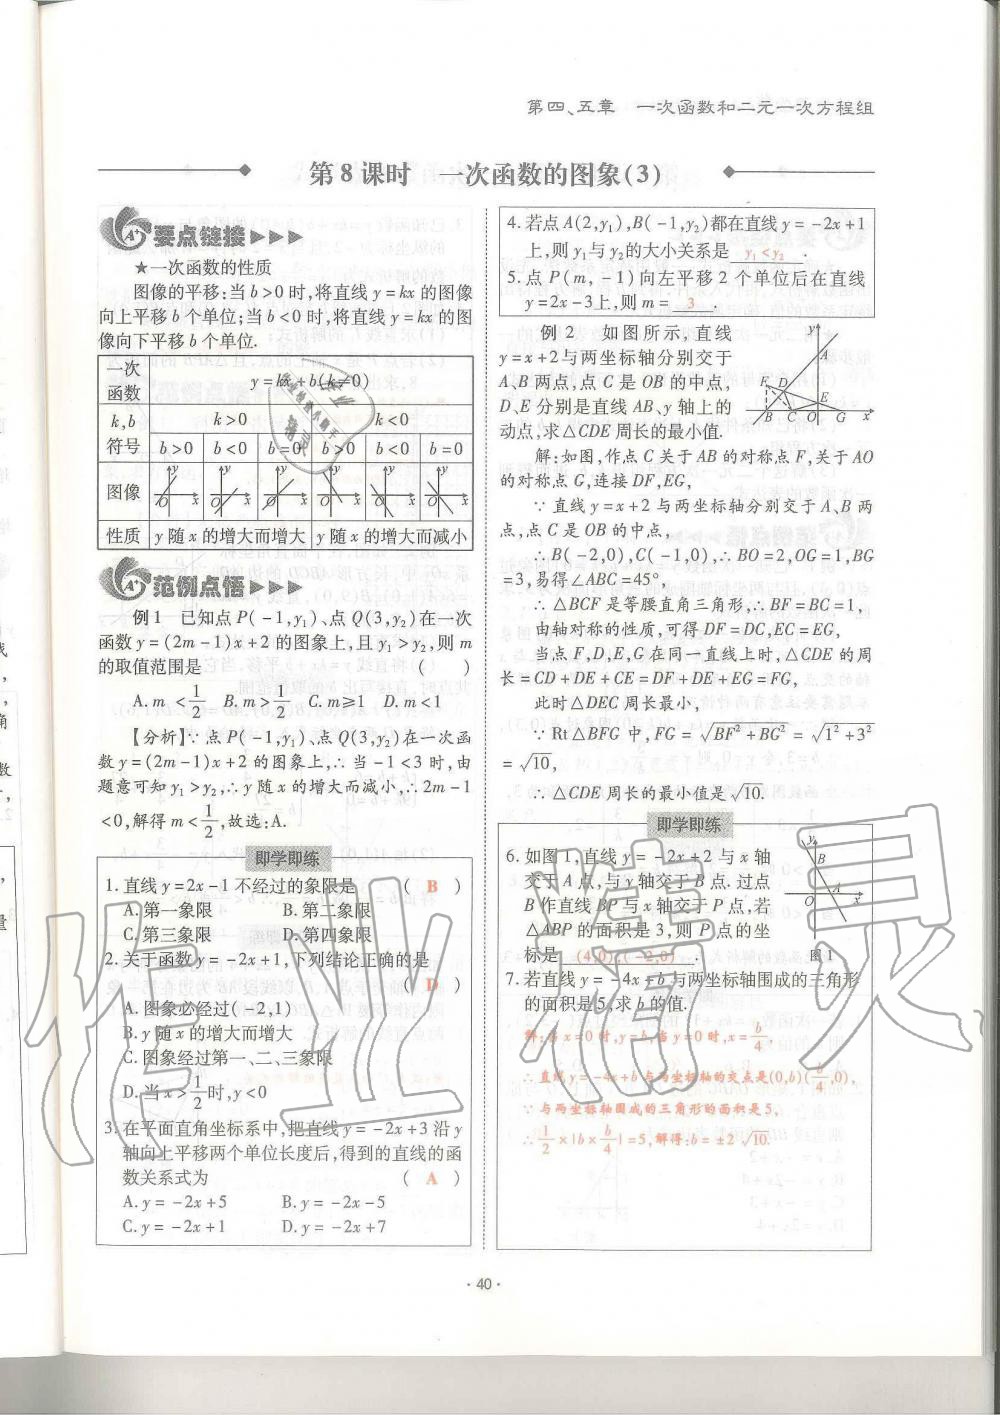 第四、五章 一次函数和二元一次方程组
第8课时 一次函数的图象(3)
要点链接
★一次函数的性质
图像的平移:当b>0时,将直线y=kx的图像
向上平移b个单位;当b<0时,将直线y=kx的图
像向下平移b个单位.
一次函数 y=kx+b(k≠0)
k,b符号 k>0 k<0
b>0 b<0 b=0 b>0 b<0 b=0
图像
性质 y随x的增大而增大 y随x的增大而减小
范例点悟
例1 已知点P(-1,y₁)、点Q(3,y₂)在一次
函数y=(2m-1)x+2的图象上,且y₁>y₂,则m
的取值范围是 ( )
A.m<1/2 B.m>1/2 C.m≥1 D.m<1
【分析】∵点P(-1,y₁)、点Q(3,y₂)在一次函
数y=(2m-1)x+2的图象上,∴当-1<3时,由
题意可知y₁>y₂,∴y随x的增大而减小,∴2m-1
<0,解得m<1/2,故选:A.
即学即练
1.直线y=2x-1不经过的象限是 ( B )
A.第一象限 B.第二象限
C.第三象限 D.第四象限
2.关于函数y=-2x+1,下列结论正确的是
( D )
A.图象必经过(-2,1)
B.y随x的增大而增大
C.图象经过第一、二、三象限
D.当x>1/2时,y<0
3.在平面直角坐标系中,把直线y=-2x+3沿y
轴向上平移两个单位长度后,得到的直线的函
数关系式为 ( A )
A.y=-2x+5 B.y=-2x-5
C.y=-2x+1 D.y=-2x+7
4.若点A(2,y₁),B(-1,y₂)都在直线y=-2x+1
上,则y₁与y₂的大小关系是 y₁<y₂ .
5.点P(m,-1)向左平移2个单位后在直线
y=2x-3上,则m= 3 .
例2 如图所示,直线
y=x+2与两坐标轴分别交于
A、B两点,点C是OB的中点,
D、E分别是直线AB、y轴上的
动点,求△CDE周长的最小值.
y A F D E B C O G x
解:如图,作点C关于AB的对称点F,关于AO
的对称点G,连接DF,EG,
∵直线y=x+2与两坐标轴分别交于A、B两
点,点C是OB的中点,
∴B(-2,0),C(-1,0),∴BO=2,OG=1,BG
=3,易得∠ABC=45°,
∴△BCF是等腰直角三角形,∴BF=BC=1,
由轴对称的性质,可得DF=DC,EC=EG,
当点F,D,E,G在同一直线上时,△CDE的周
长=CD+DE+CE=DF+DE+EG=FG,
此时△DEC周长最小,
∵Rt△BFG中,FG=√BF²+BG²=√1²+3²
=√10,
∴△CDE周长的最小值是√10.
即学即练
6.如图1,直线y=-2x+2与x轴
交于A点,与y轴交于B点.过点
B作直线BP与x轴交于P点,若
△ABP的面积是3,则P点的坐
标是 (4,0),(-2,0) .
y B O A x
图1
7.若直线y=-4x+b与两坐标轴围成的三角形
的面积是5,求b的值.
解:当x=0时,y=b,当y=0时,x=b/4,
∴直线y=-4x+b与两坐标轴的交点是(0,b)(b/4,0),
∵与两坐标轴围成的三角形的面积是5,
∴1/2×|b×b/4|=5,解得:b=±2√10.
·40·
作业精灵